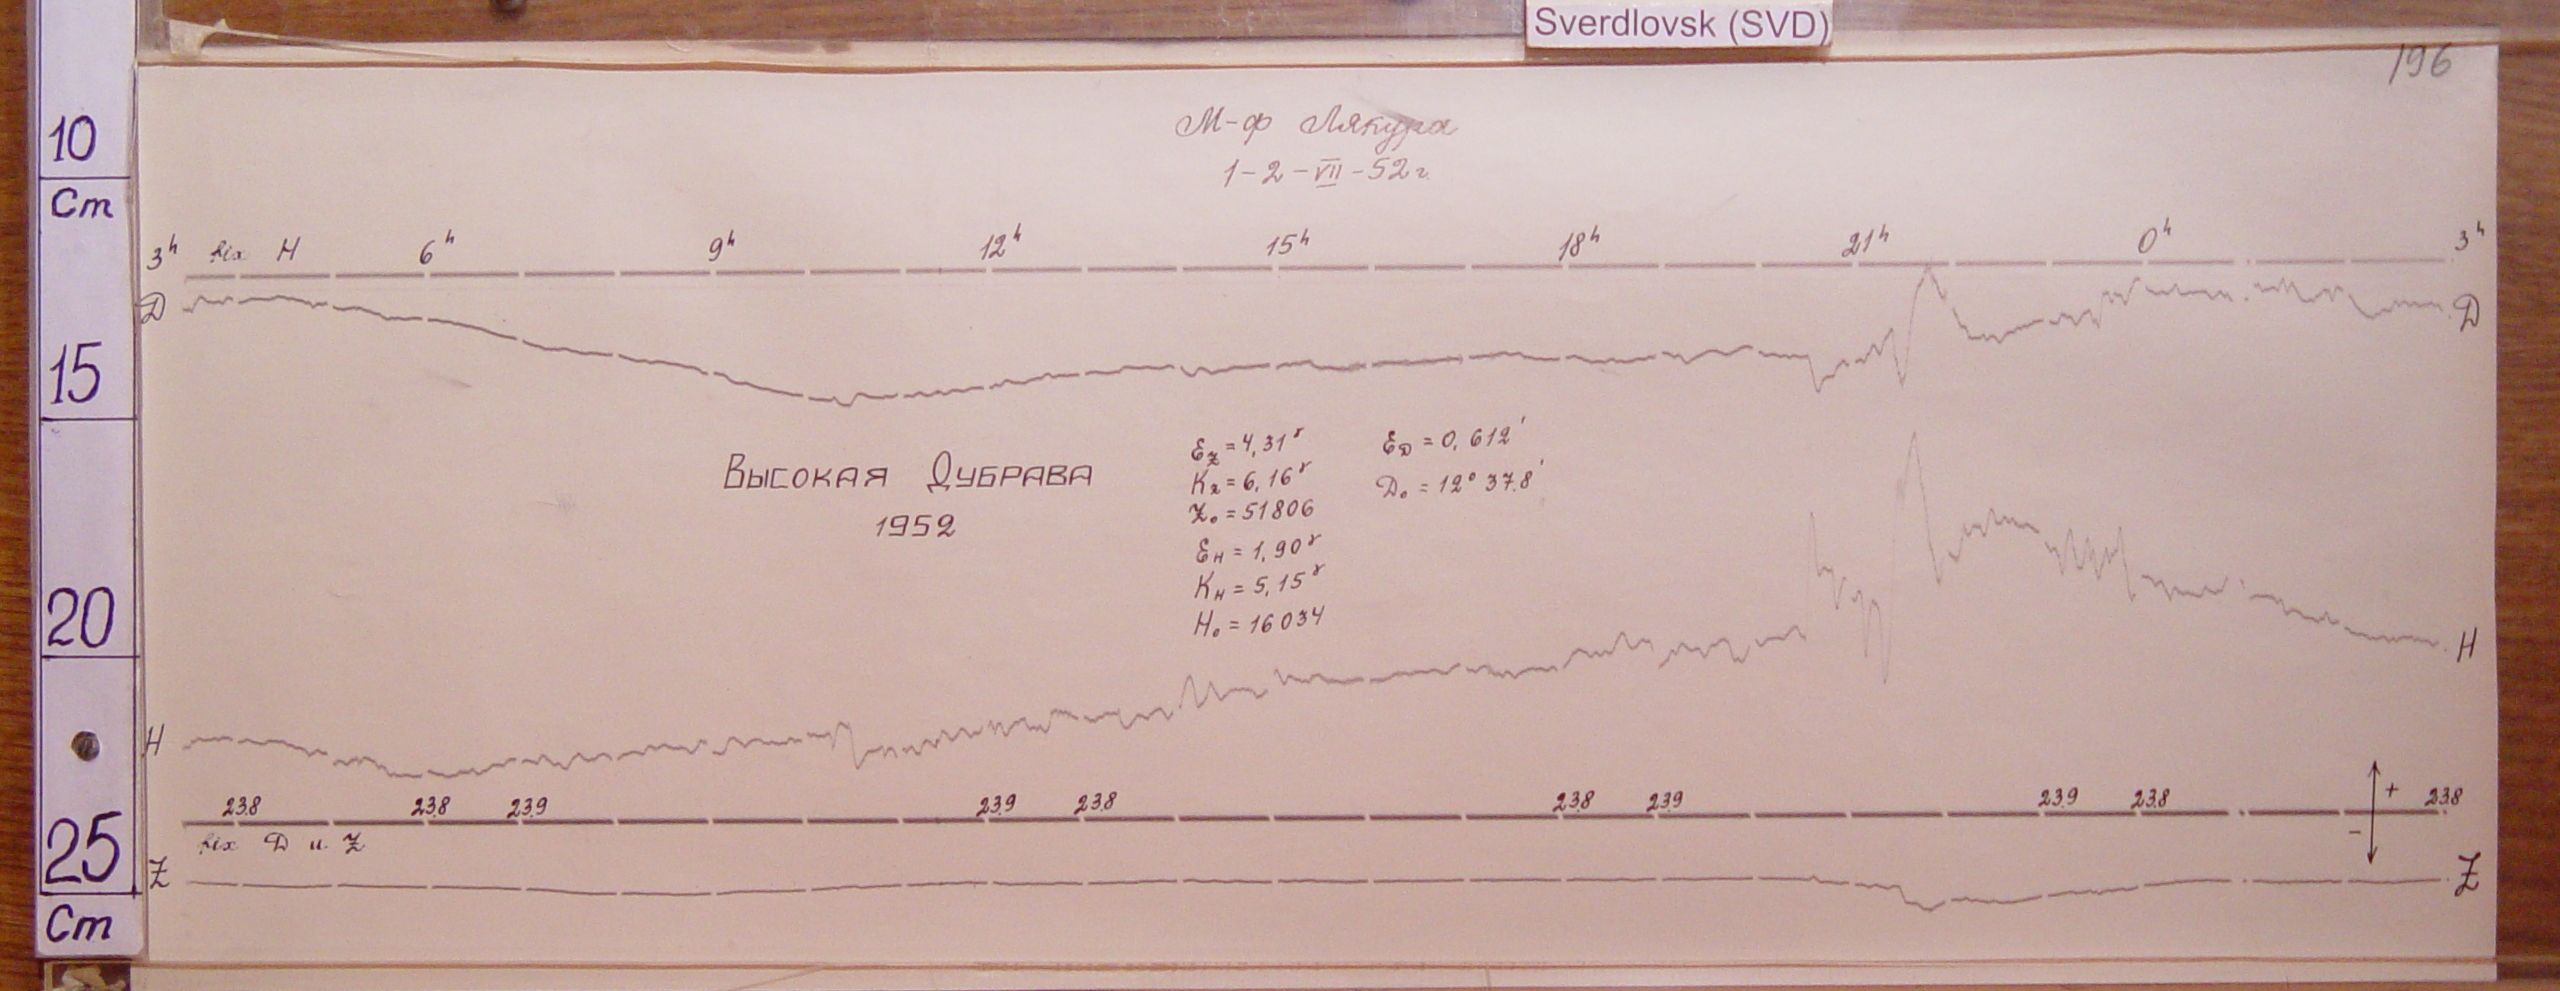 Sverdlovsk (SVD)
196
М-ф Лякура
1-2-VII-52 г.
10
Cm
15
20
25
Cm
3ʰ fix H 6ʰ 9ʰ 12ʰ 15ʰ 18ʰ 21ʰ 0ʰ 3ʰ
D D
Высокая Дубрава
1952
Ez = 4,31ᵞ
Kz = 6,16ᵞ
Z₀ = 51806
Eн = 1,90ᵞ
Kн = 5,15ᵞ
H₀ = 16034
ED = 0,612'
D₀ = 12° 37.8'
H H
23.8 23.8 23.9 23.9 23.8 23.8 23.9 23.9 23.8 + 23.8
-
fix D и Z
Z Z